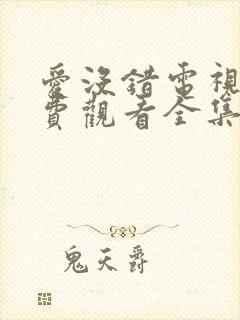 愛沒錯電視
費觀看全集
鬼天爵